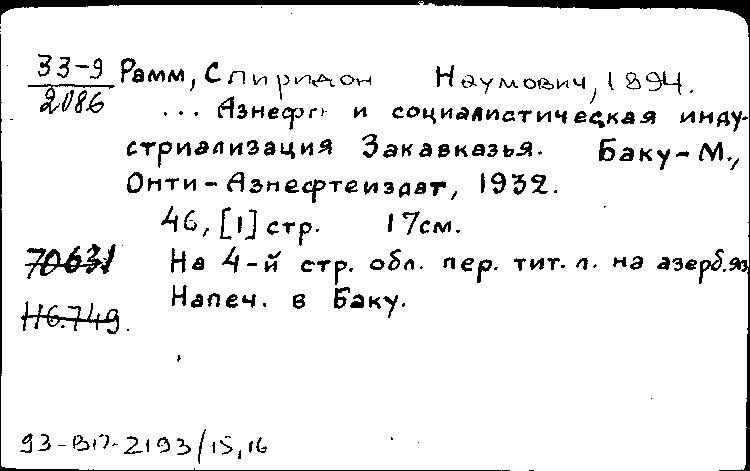 33-9 Рамм, Спиридон Наумович, 1894.
2086
... Азнефть и социалистическая инду-
стриализация Закавказья. Баку-М.,
Онти-Азнефтеиздат, 1932.
46, [1] стр. 17см.
70631 На 4-й стр. обл. пер. тит. л. на азерб.яз.
Напеч. в Баку.
116.749.
93-ВП-2193/15,16